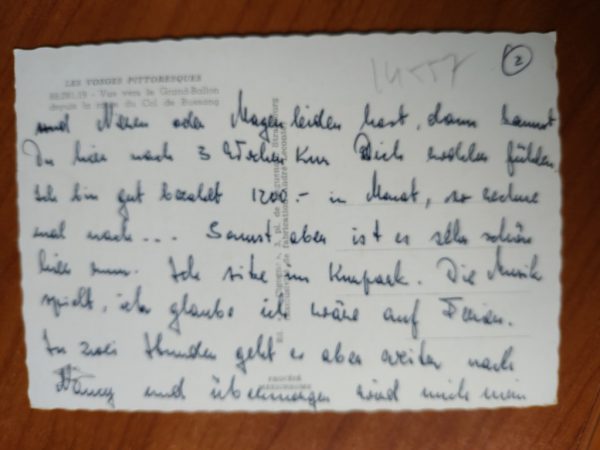 LES VOSGES PITTORESQUES
88.081.19 - Vue vers le Grand-Ballon
depuis la du Col de Bussang
14557
2
und Nieren oder Magenleiden hast, dann kannst
Du hier nach 3 Wochen Kur Dich wohler fühlen
Ich bin gut bezahlt 1200.- in Monat, so rechne
mal nach... Sonst aber ist es sehr schön
hier nun. Ich sitze im Kurpark. Die Musik
spielt, ich glaube ich wäre auf Ferien.
In zwei Stunden geht es aber weiter nach
Nancy und übermorgen wird mich mein